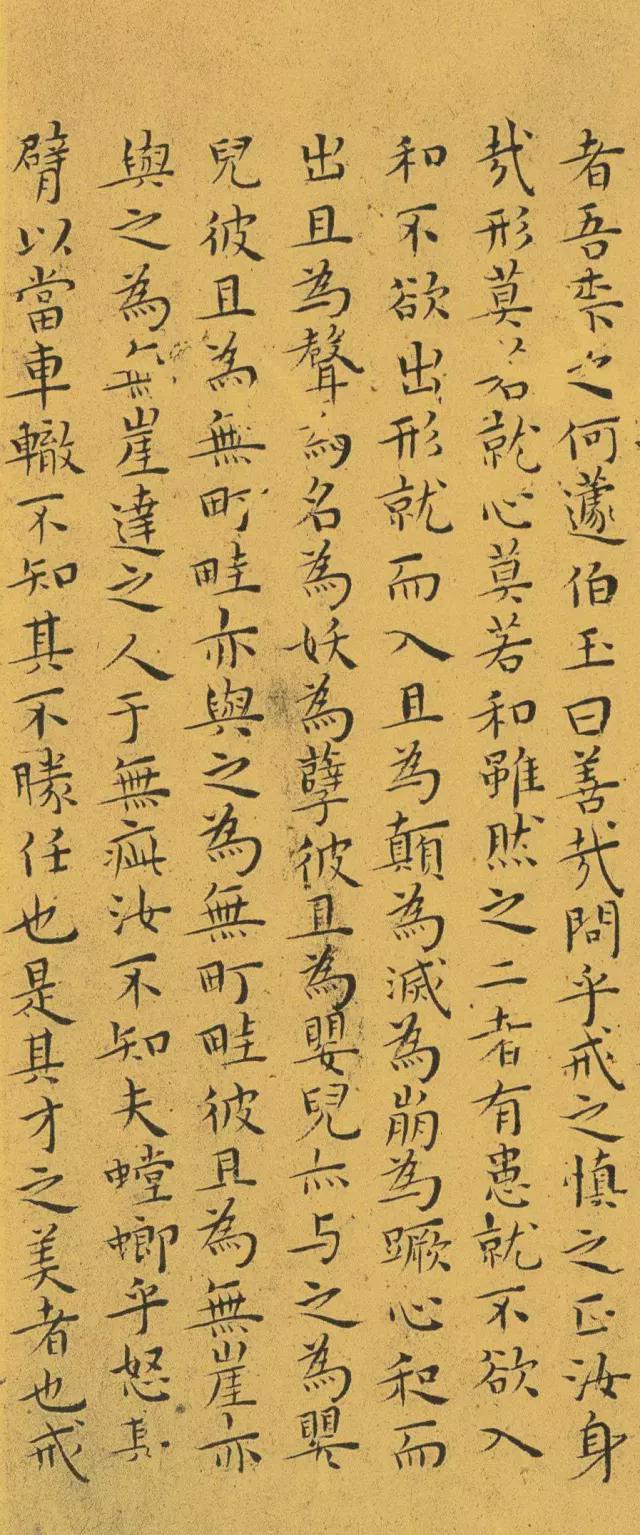 者吾柰之何蘧伯玉曰善㢤問乎戒之慎之正汝身
㢤形莫若就心莫若和雖然之二者有患就不欲入
和不欲出形就而入且為顛為滅為崩為蹶心和而
出且為聲為名為妖為孽彼且為嬰兒亦与之為嬰
兒彼且為無町畦亦與之為無町畦彼且為無崖亦
與之為無崖達之人于無疵汝不知夫螳螂乎怒其
臂以當車轍不知其不勝任也是其才之美者也戒